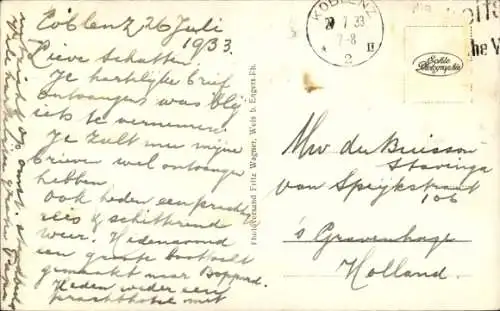 Coblenz 26 Juli
1933.
Lieve Schatten.
Je hartelijke brief
ontvangen was blij
iets te vernemen.
Je zult mijn
brieven wel ontvangen
hebben.
Ook heden een prachtig
reis & schitterend
weer. Hedenavond
een groote boottocht
gemaakt naar Boppard.
Heden weder een
prachthotel met
KOBLENZ
7 33
7-8
2
II
Echte Photographie
Photoversand Fritz Wagner, Weis b. Engers Rh.
Mw du Buisson-
Stavinga
van Speijkstraat
106
's Gravenhage
Holland.